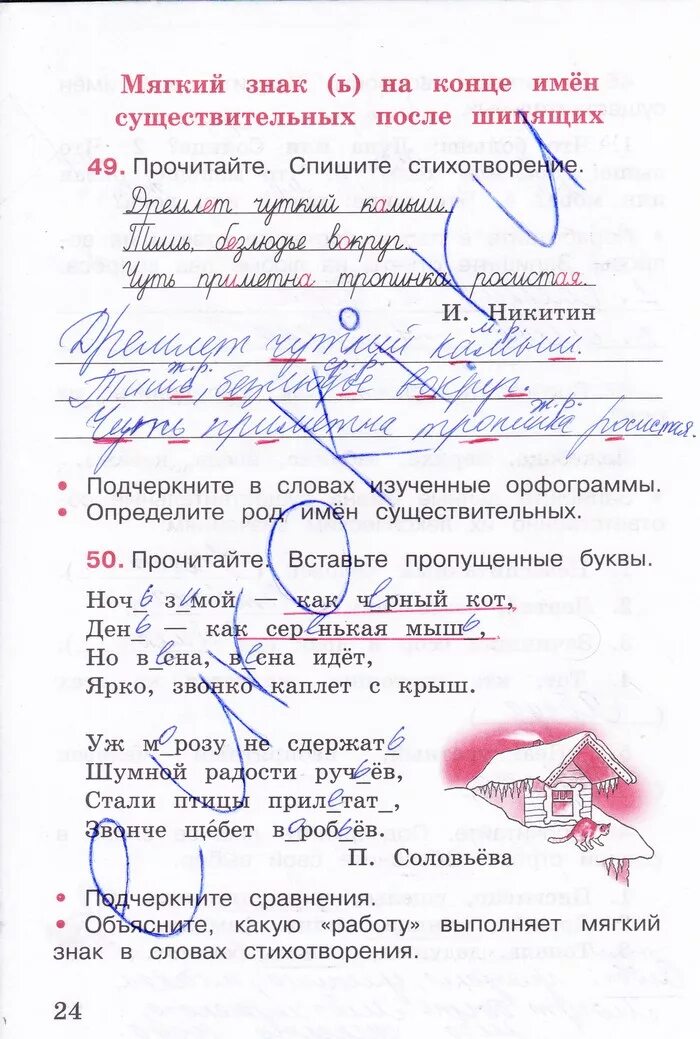 Мягкий знак (ь) на конце имён
существительных после шипящих
49. Прочитайте. Спишите стихотворение.
Дремлет чуткий камыш.
Тишь, безлюдье вокруг.
Чуть приметна тропинка росистая.
И. Никитин
м.р.
Дремлет чуткий камыш.
ж.р. ср.р.
Тишь, безлюдье вокруг.
ж.р.
Чуть приметна тропинка росистая.
• Подчеркните в словах изученные орфограммы.
• Определите род имён существительных.
50. Прочитайте. Вставьте пропущенные буквы.
Ночь зимой — как чёрный кот,
День — как серенькая мышь,
Но в_сна, в_сна идёт,
Ярко, звонко каплет с крыш.
Уж морозу не сдержать
Шумной радости ручьёв,
Стали птицы прилетат_,
Звонче щебет в_робьёв.
П. Соловьёва
• Подчеркните сравнения.
• Объясните, какую «работу» выполняет мягкий
знак в словах стихотворения.
24